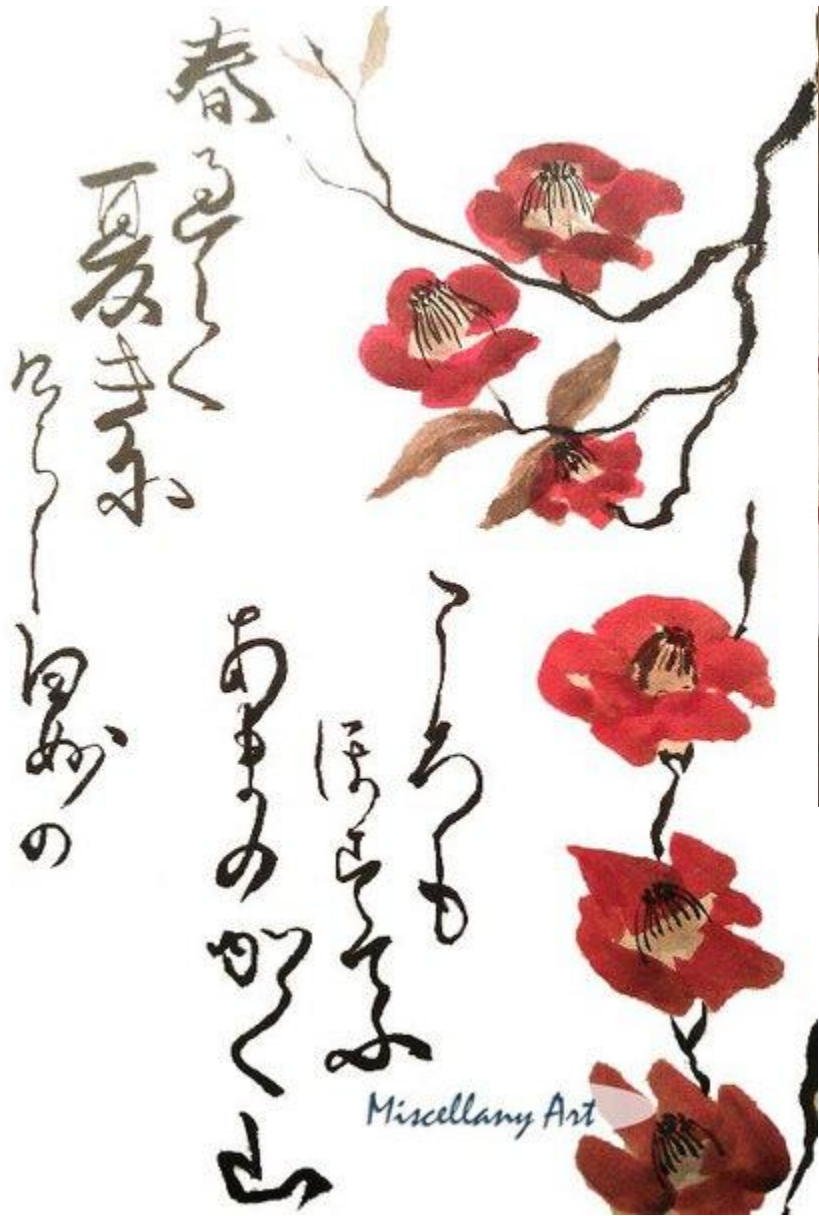 春
夏き尓
けらし白妙の
ころも
ほすてふ
あまのかく山
Miscellany Art